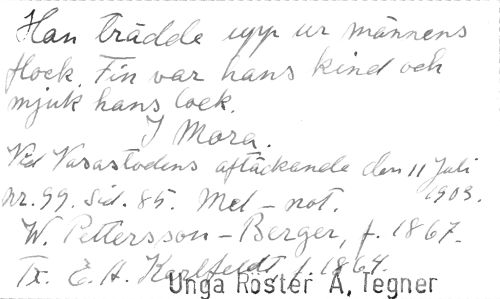 Han trädde upp ur männens
flock. Fin var hans kind och
mjuk hans lock.
I Mora.
Vid Vasastodens aftäckande den 11 Juli
nr. 99. Sid. 85. Mel - not. 1903.
W. Pettersson - Berger, f. 1867.
Tx. E. A. Karlfeldt f. 1864.
Unga Röster A. Tegner